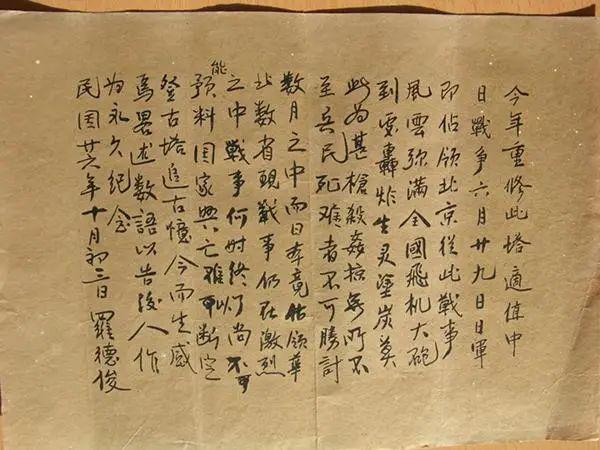 今年重修此塔適值中
日戰争六月廿九日日軍
即佔领北京從此戰事
風雲弥满全國飛机大砲
到處轟炸生灵塗炭莫
此为甚槍殺姦掠無所不
至兵民死难者不可勝計
数月之中而日本竟佔领華
北数省現戰事仍在激烈
之中戰事何时终了尚不可
能预料国家興亡难以断定
登古塔追古憶今而生感
焉畧述数語以告後人作
为永久纪念
民国廿六年十月初三日羅德俊